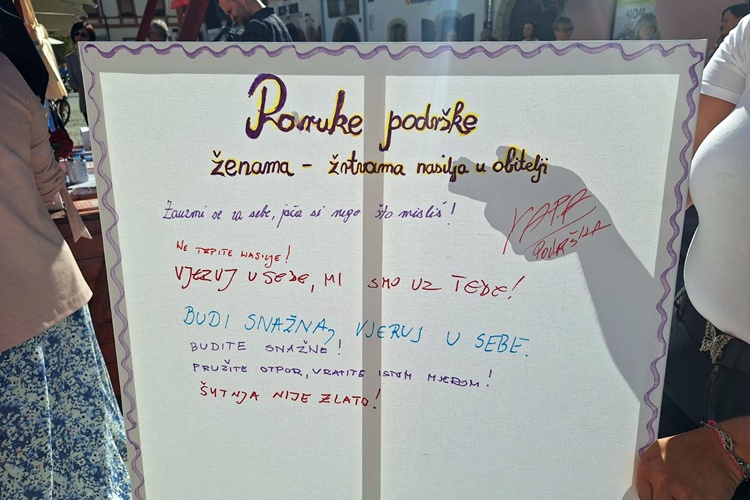 Poruke podrške
ženama - žrtvama nasilja u obitelji
Zauzmi se za sebe, jača si nego što misliš!
PODRŠKA
NE TRPITE NASILJE!
VJERUJ U SEBE, MI SMO UZ TEBE!
BUDI SNAŽNA, VJERUJ U SEBE.
BUDITE SNAŽNE!
PRUŽITE OTPOR, VRATITE ISTOM MJEROM!
ŠUTNJA NIJE ZLATO!